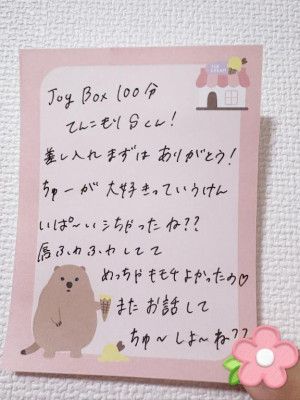 Joy Box 100分
てんこもりSくん!
差し入れまずは ありがとう!
ちゅーが 大好きっていうけん
いぱ〜い シちゃったね??
唇ふわふわしてて
めっちゃキモチよかったの♡
また お話して
ちゅ〜しよ〜ね??